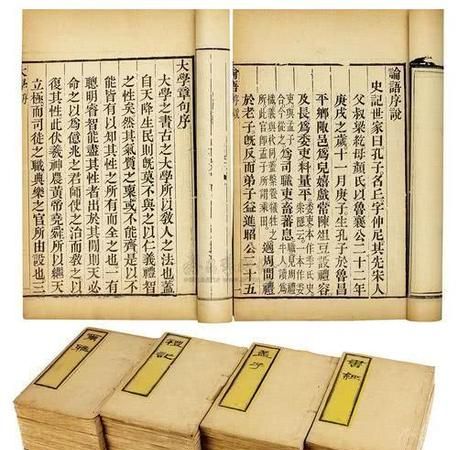 論語序說
史記世家曰孔子名丘字仲尼其先宋人
父叔梁紇母顏氏以魯襄公二十二年
庚戌之歲十一月庚子生孔子於魯昌
平鄉陬邑爲兒嬉戲常陳俎豆設禮容
及長爲委吏料量平委吏本作季氏史索隱云一本作委
吏與孟子合今從之爲司職吏畜蕃息職見周禮牛人讀爲
樴義與杙同蓋繫養犧牲之所此官即孟子所謂乘田適周問禮
於老子旣反而弟子益進昭公二十五
大學章句序
大學之書古之大學所以教人之法也蓋
自天降生民則旣莫不與之以仁義禮智
之性矣然其氣質之稟或不能齊是以不
能皆有以知其性之所有而全之也一有
聰明睿智能盡其性者出於其間則天必
命之以爲億兆之君師使之治而教之以
復其性此伏羲神農黃帝堯舜所以繼天
立極而司徒之職典樂之官所由設也三
大學序
書經
孟子
禮記
爾雅